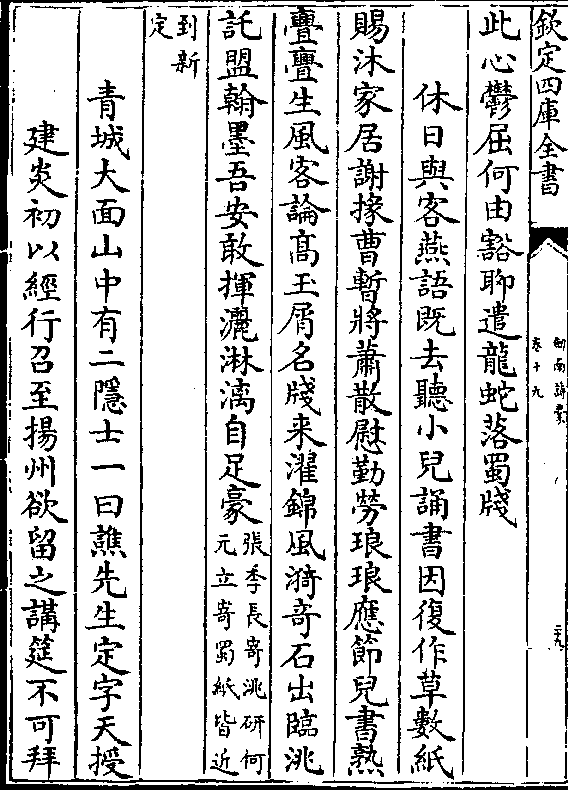 欽定四庫全書
劒南詩稾
卷十九
二九
此心鬱屈何由豁聊遣龍蛇落蜀牋
休日與客燕語既去聽小兒誦書因復作草數紙
賜沐家居謝掾曹暫將蕭散慰勤勞琅琅應節兒書熟
亹亹生風客論髙玉屑名牋来濯錦風漪奇石出臨洮
託盟翰墨吾安敢揮灑淋漓自足豪張季長寄洮研何
元立寄蜀紙皆近
到新
定
青城大面山中有二隱士一曰譙先生定字天授
建炎初以經行召至揚州欲留之講筵不可拜